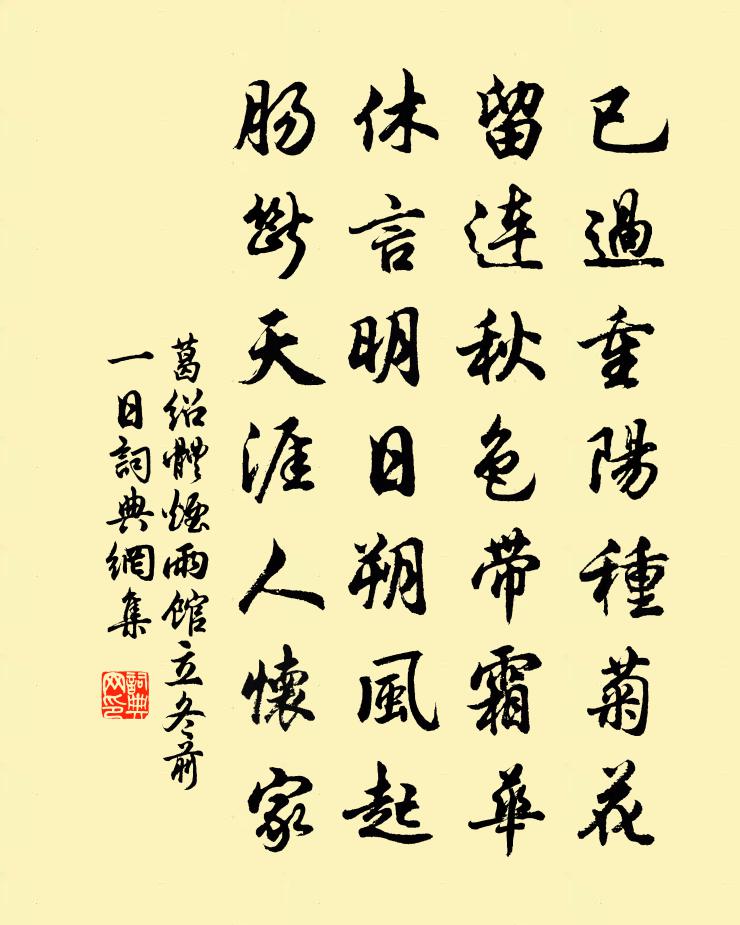 已過重陽種菊花
留連秋色帶霜華
休言明日朔風起
腸斷天涯人懷家
葛绍體煙雨館立冬前
一日詞典網集
詞典
网印